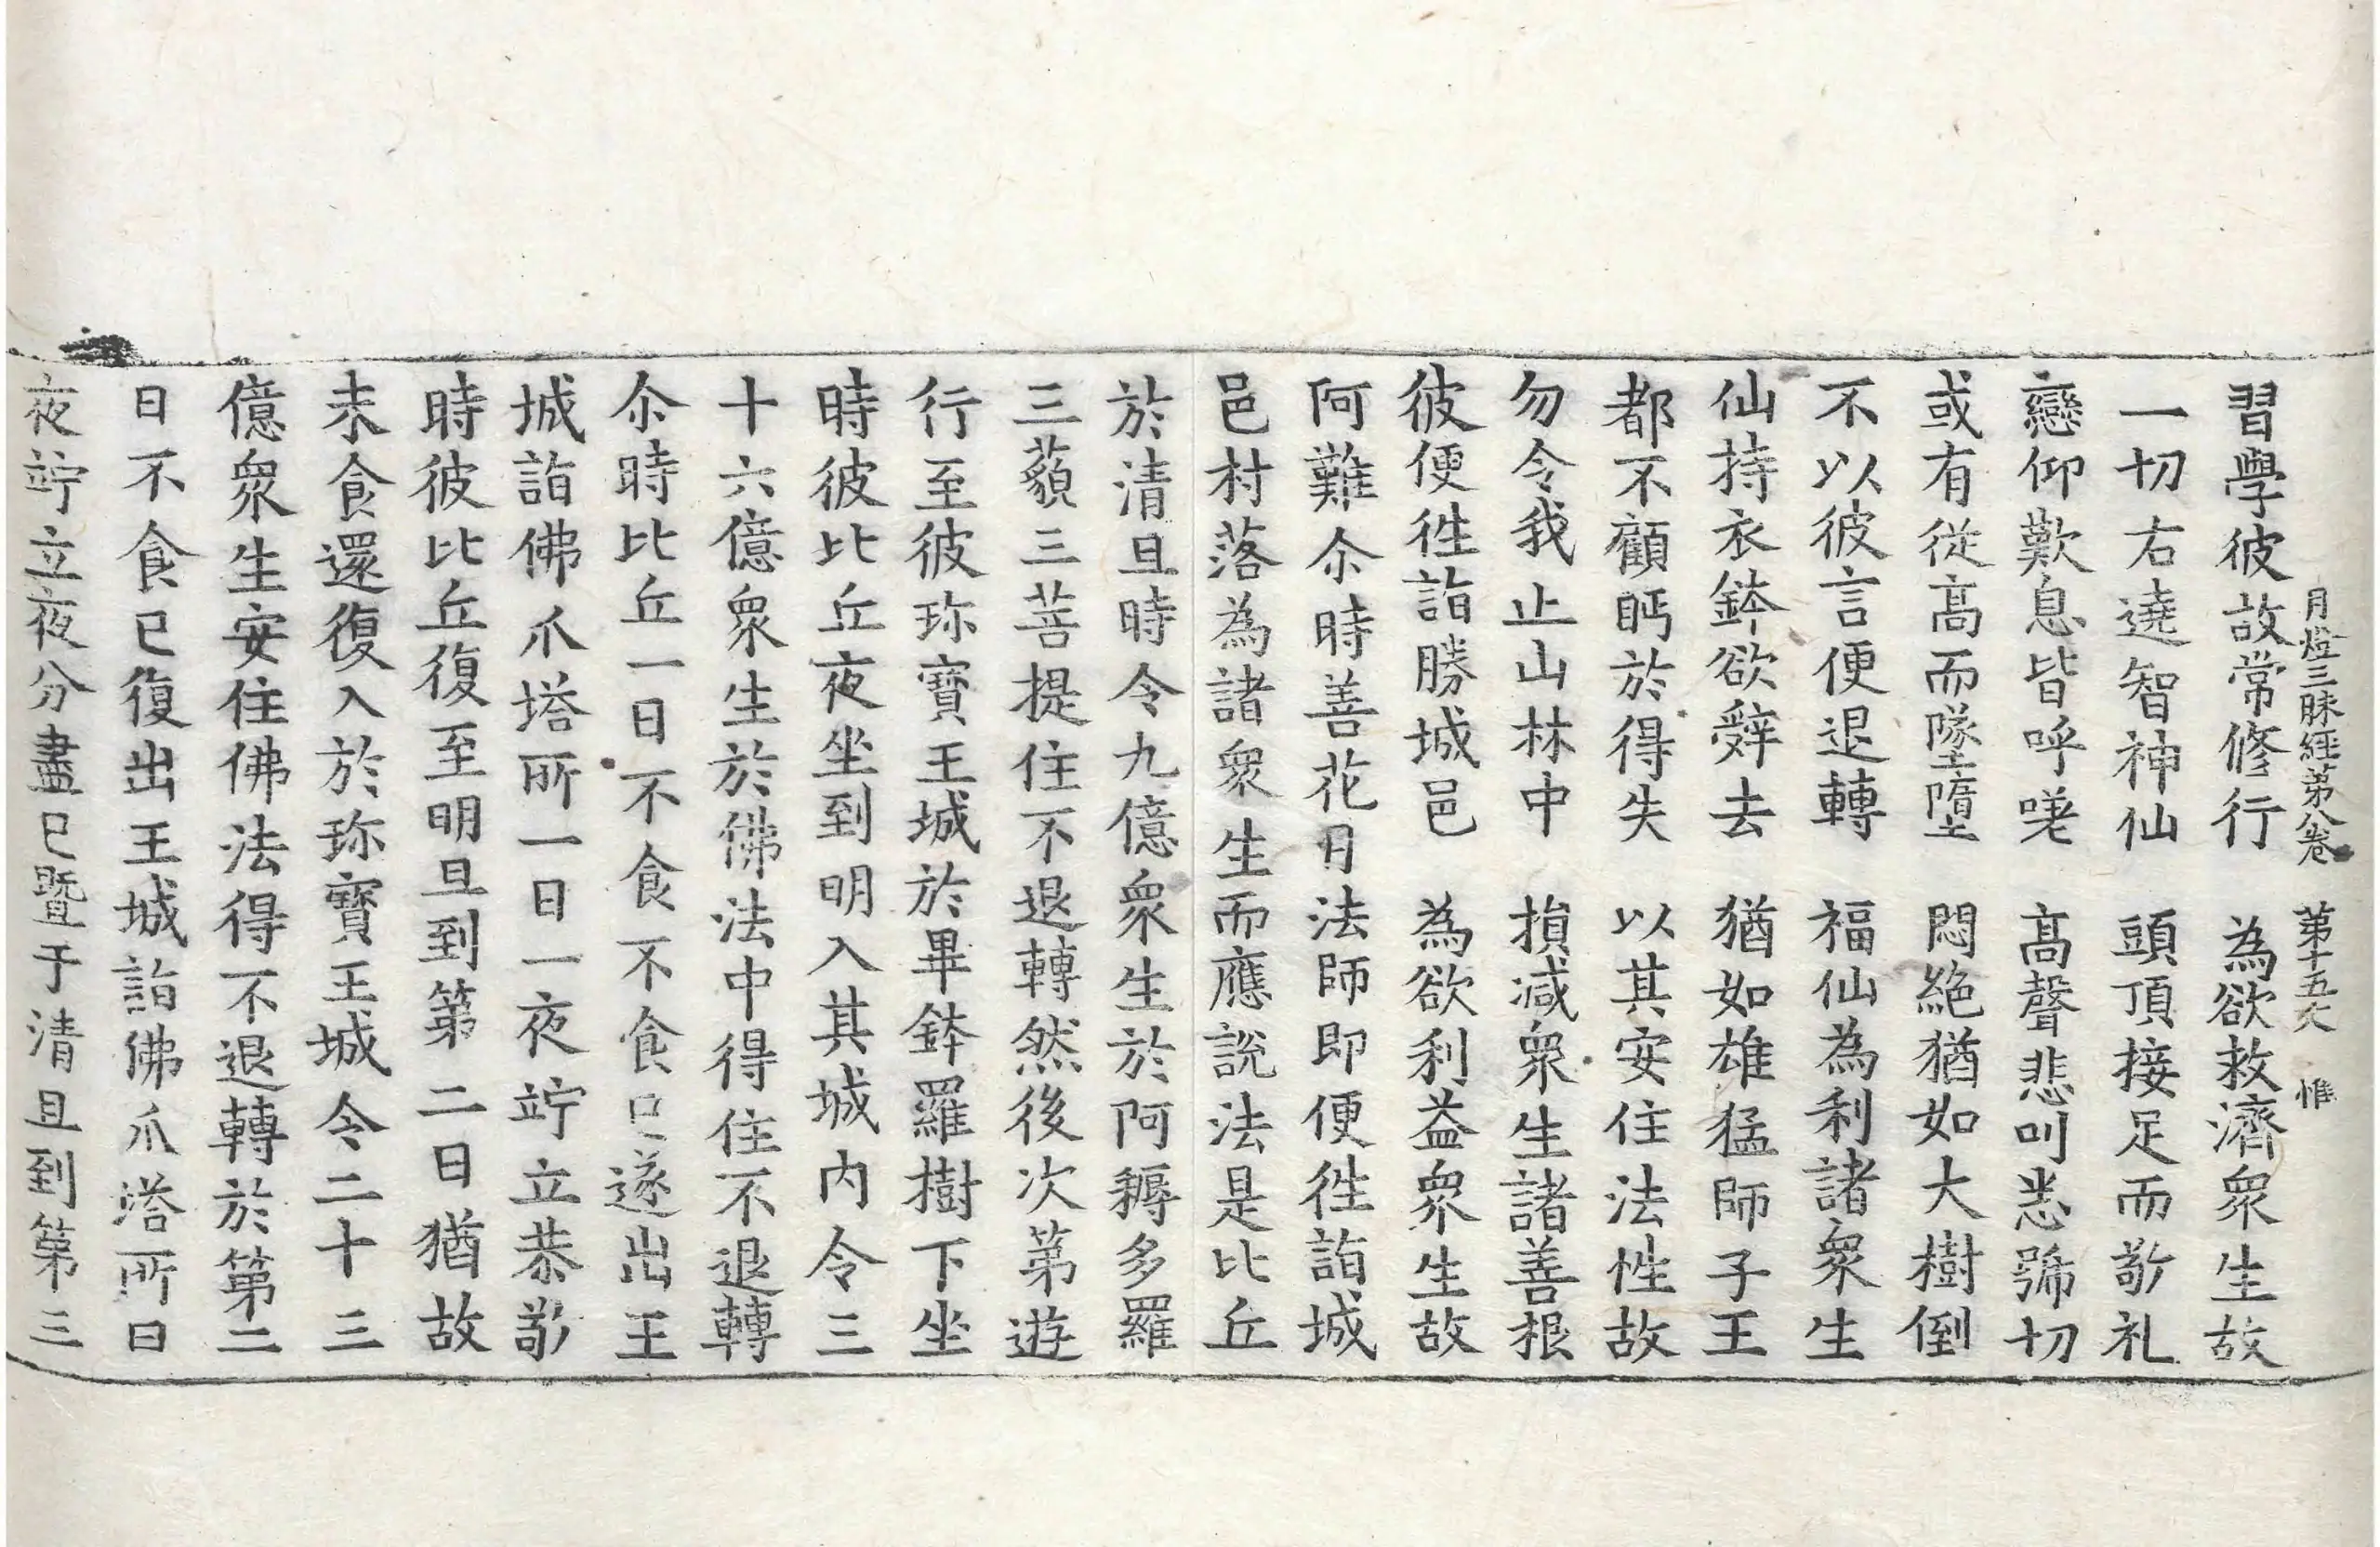 月燈三昧經第八卷 第十五丈 惟
習學彼故常修行 為欲救濟衆生故
一切右遶智神仙 頭頂接足而敬礼
戀仰歎息皆呼嗟 高聲悲叫恙號切
或有從高而墜墮 悶絕猶如大樹倒
不以彼言便退轉 福仙為利諸衆生
仙持衣鉢欲辤去 猶如雄猛師子王
都不顧眄於得失 以其安住法性故
勿令我止山林中 損减衆生諸善根
彼便徃詣勝城邑 為欲利益衆生故
阿難尒時善花月法師即便徃詣城
邑村落為諸衆生而應說法是比丘
於清旦時令九億衆生於阿耨多羅
三藐三菩提住不退轉然後次第遊
行至彼珎寶王城於畢鉢羅樹下坐
時彼比丘夜坐到明入其城內令三
十六億衆生於佛法中得住不退轉
尒時比丘一日不食不食已遂出王
城詣佛爪塔所一日一夜竚立恭敬
時彼比丘復至明旦到第二日猶故
未食還復入於珎寶王城令二十三
億衆生安住佛法得不退轉於第二
日不食已復出王城詣佛爪塔所日
夜竚立夜分盡已暨于清旦到第三